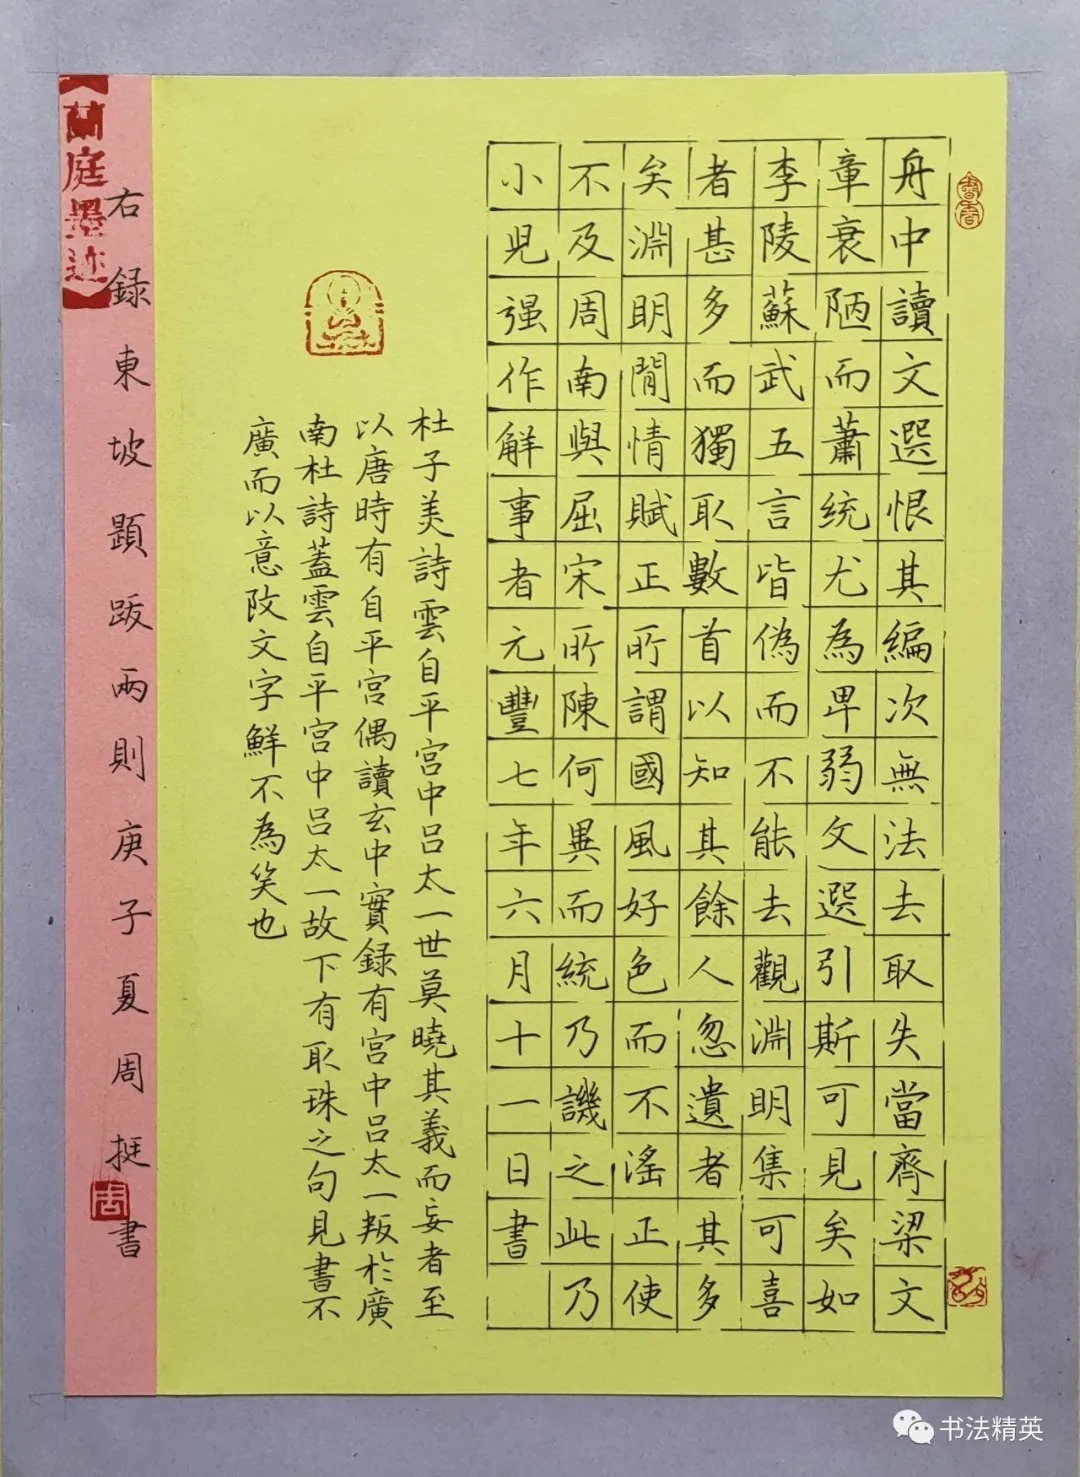 舟中讀文選恨其編次無法去取失當齊梁文
章衰陋而蕭統尤為卑弱文選引斯可見矣如
李陵蘇武五言皆偽而不能去觀淵明集可喜
者甚多而獨取數首以知其餘人忽遺者其多
矣淵明閒情賦正所謂國風好色而不滛正使
不及周南與屈宋所陳何異而統乃譏之此乃
小児强作解事者元豐七年六月十一日書
杜子美詩雲自平宮中呂太一世莫曉其義而妄者至
以唐時有自平宮偶讀玄中實録有宮中呂太一叛於廣
南杜詩蓋雲自平宮中呂太一故下有取珠之句見書不
廣而以意改文字鮮不為笑也
右録東坡題跋兩則庚子夏周挺書
蘭庭墨迹
周
书法精英